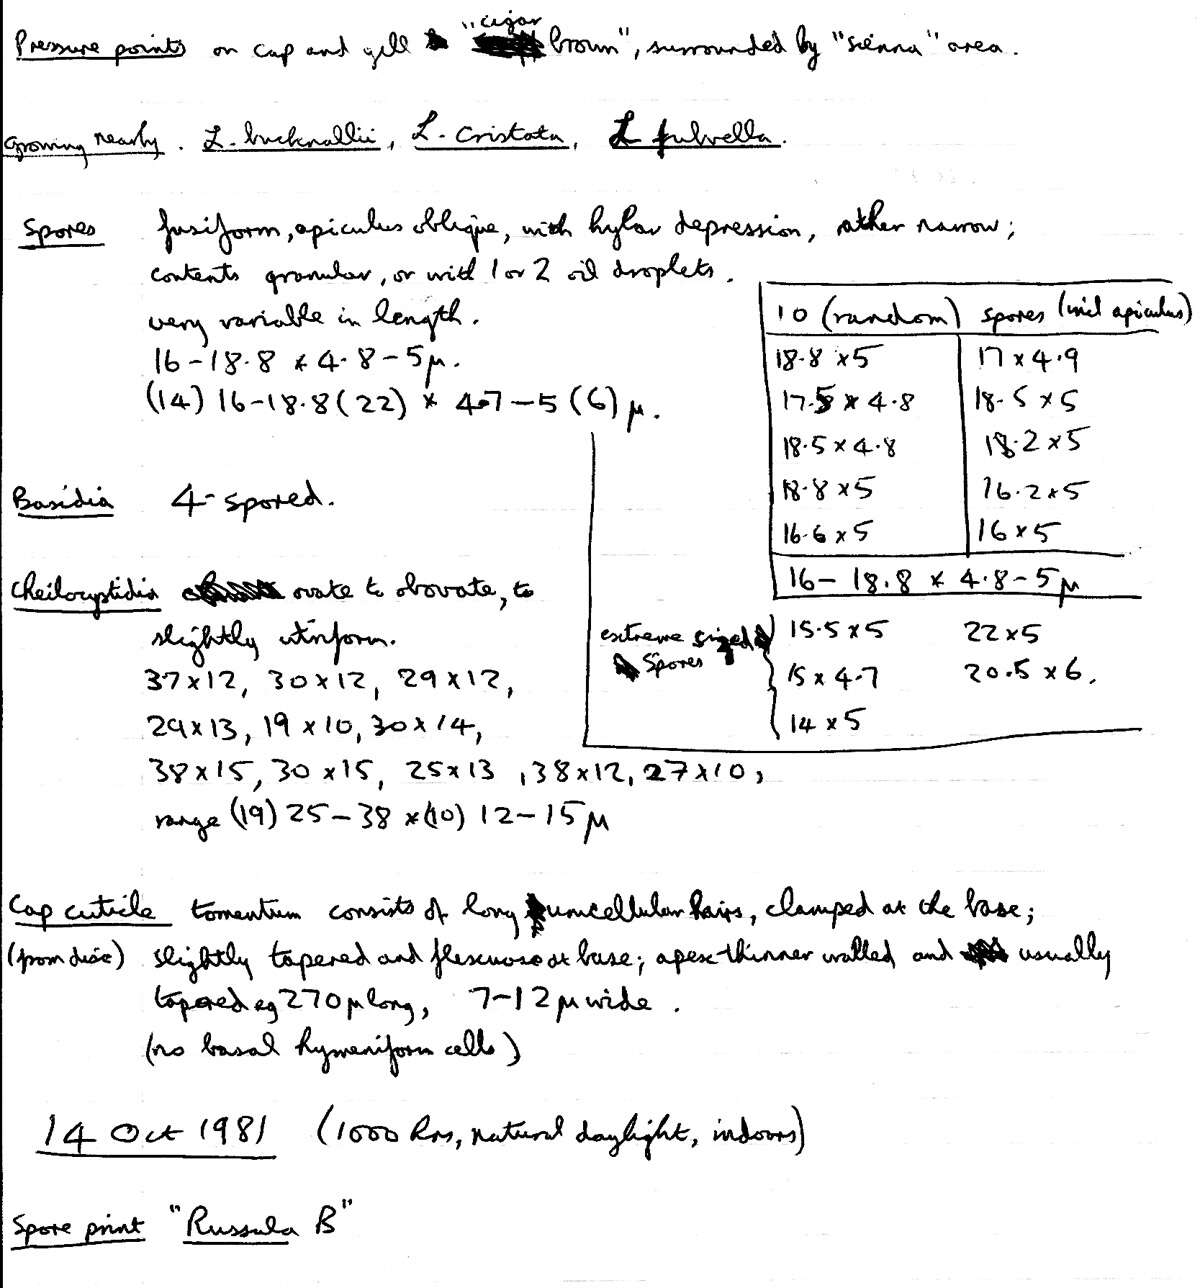 Pressure points on cap and gill "cigar brown", surrounded by "sienna" area.
Growing nearby. L. bucknallii, L. cristata, L fulvella.
Spores fusiform, apiculus oblique, with hylar depression, rather narrow;
contents granular, or with 1 or 2 oil droplets.
very variable in length.
16-18.8 x 4.8-5µ.
(14) 16-18.8 (22) x 4.7-5 (6) µ.
10 (random) spores (incl apiculus)
18.8 x 5 17 x 4.9
17.5 x 4.8 18.5 x 5
18.5 x 4.8 18.2 x 5
18.8 x 5 16.2 x 5
16.6 x 5 16 x 5
16-18.8 x 4.8-5µ
extreme sized 15.5 x 5 22 x 5
spores 15 x 4.7 20.5 x 6.
14 x 5
Basidia 4-spored.
Cheilocystidia ovate to obovate, to
slightly utriform.
37 x 12, 30 x 12, 29 x 12,
29 x 13, 19 x 10, 30 x 14,
38 x 15, 30 x 15, 25 x 13, 38 x 12, 27 x 10,
range (19) 25-38 x (10) 12-15 µ
Cap cuticle tomentum consists of long unicellular hairs, clamped at the base;
(from disc) slightly tapered and flexuose at base; apex thinner walled and usually
tapered eg 270µ long, 7-12µ wide.
(no basal hymeniform cells)
14 Oct 1981 (1000 hrs, natural daylight, indoors)
Spore print "Russula B"